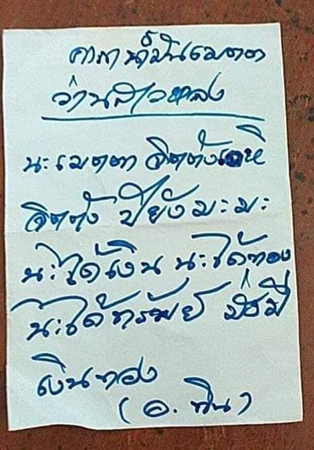 คาถาน้ำมันเมตตา
ว่านสาวหลง
นะเมตตา จิตตังเอหิ
จิตตัง ปิยังมะมะ
นะได้เงิน นะได้ทอง
นะได้ทรัพย์ มั่งมี
เงินทอง
(อ. พิน)